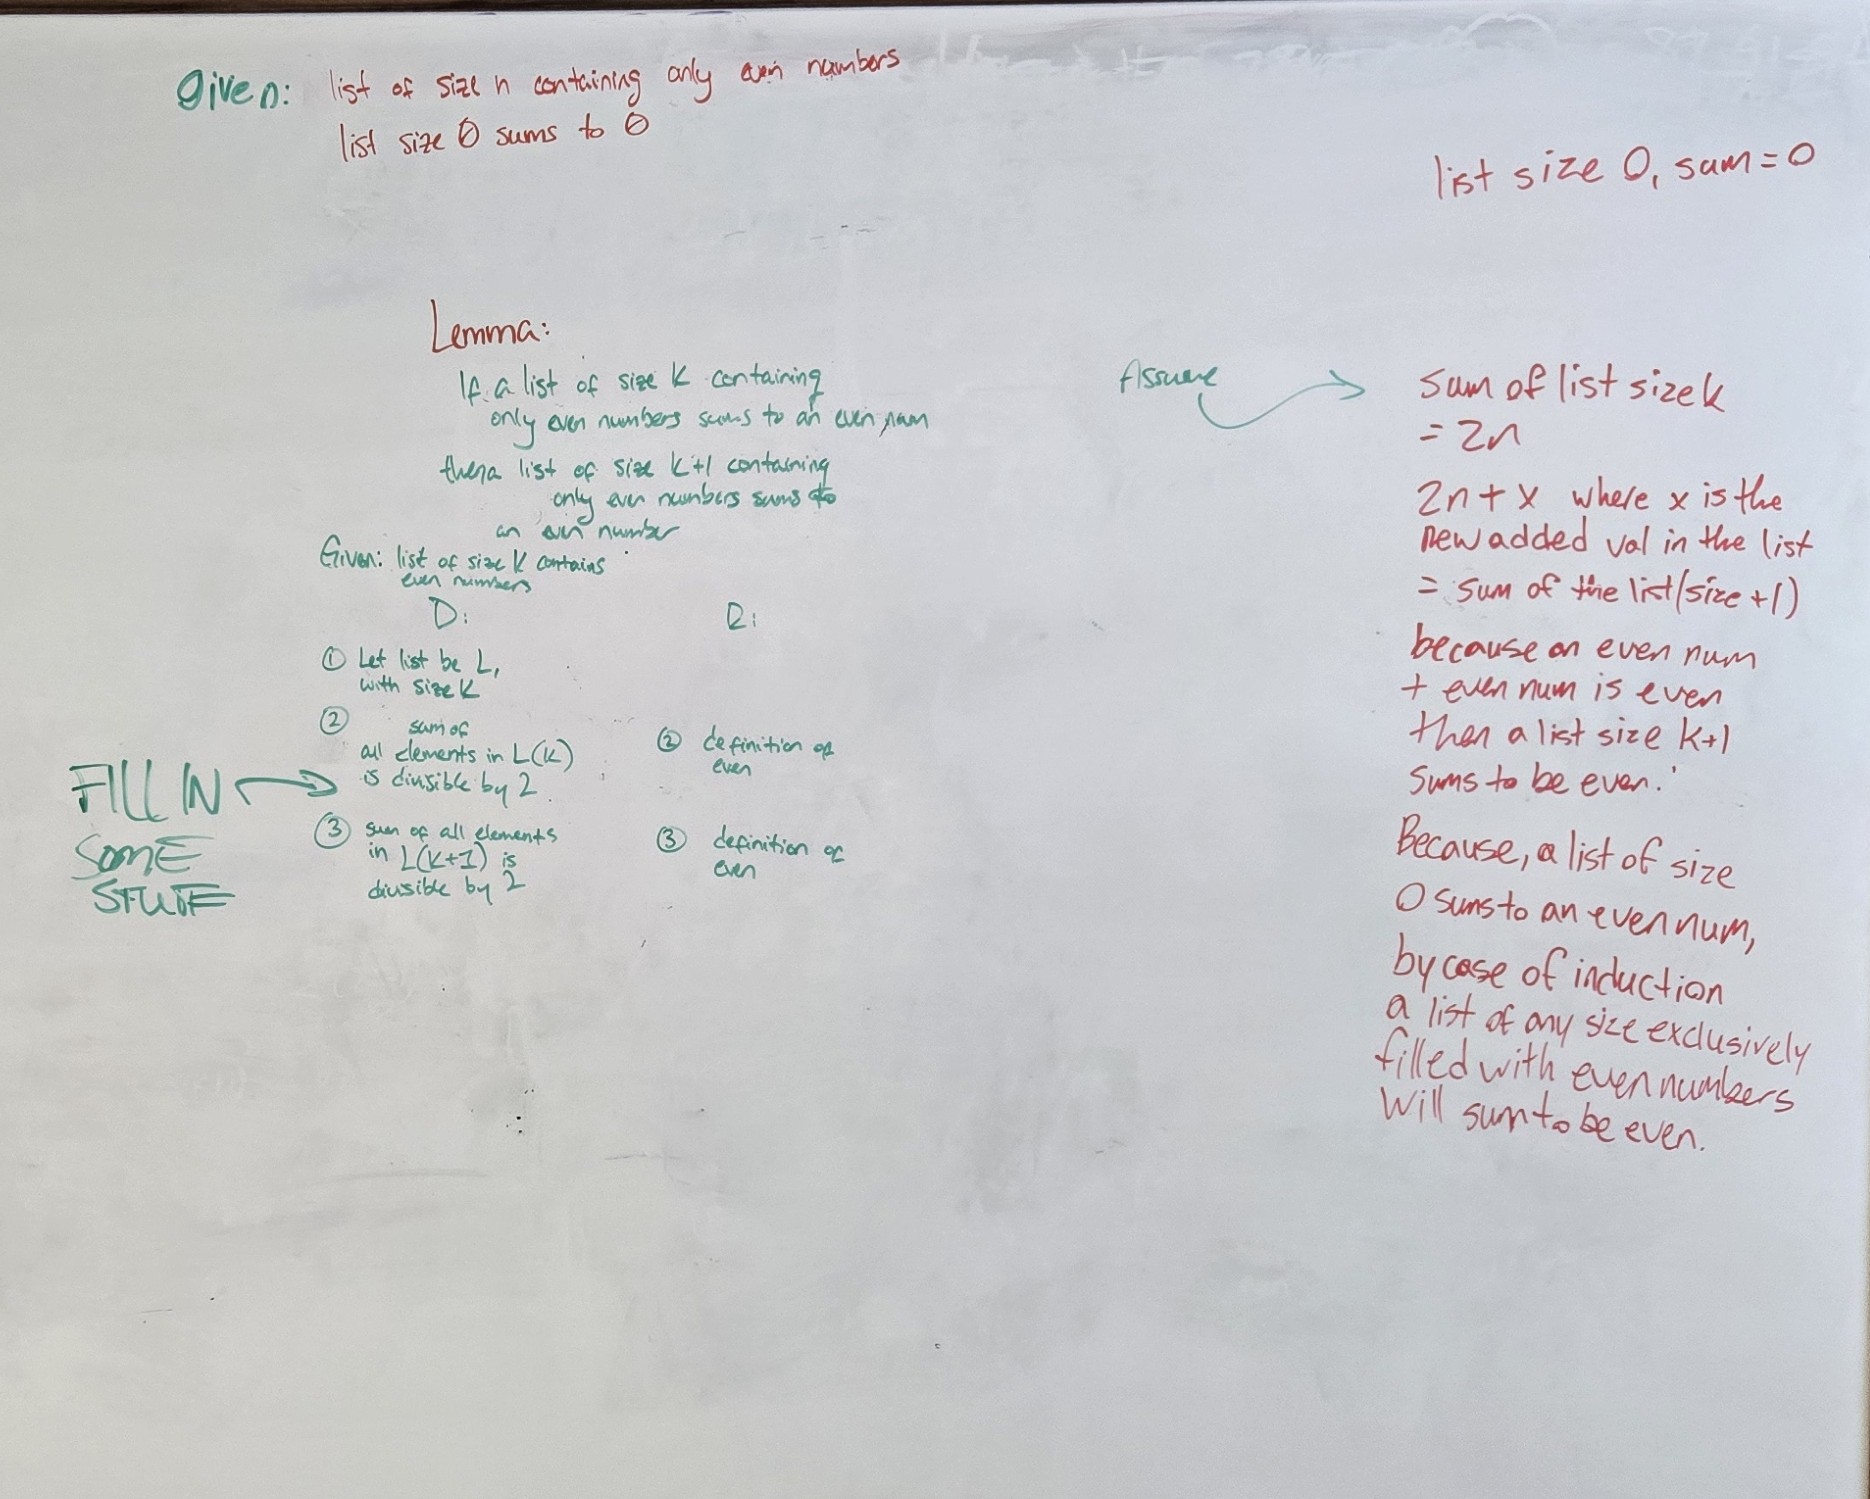 Given: list of size n containing only even numbers
list size 0 sums to 0
list size 0, sum = 0
Lemma:
If a list of size K containing
only even numbers sums to an even num
then a list of size K+1 containing
only even numbers sums to
an even number
Given: list of size K contains
even numbers
D: R:
① Let list be L,
with size K
② sum of
all elements in L(K)
is divisible by 2
② definition of
even
FILL IN
SOME
STUFF
③ sum of all elements
in L(K+1) is
divisible by 2
③ definition of
even
Assume
sum of list size k
= 2n
2n + x where x is the
new added val in the list
= sum of the list (size + 1)
because an even num
+ even num is even
then a list size k+1
sums to be even.
Because, a list of size
0 sums to an even num,
by case of induction
a list of any size exclusively
filled with even numbers
will sum to be even.